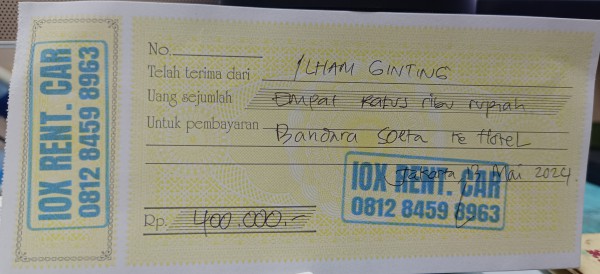 IOX RENT. CAR
0812 8459 8963
No.
Telah terima dari ILHAM GINTING
Uang sejumlah Empat Ratus ribu rupiah
Untuk pembayaran Bandara Soeta ke Hotel
Jakarta 3 Mai 2024
IOX RENT. CAR
0812 8459 8963
Rp. 400.000.-